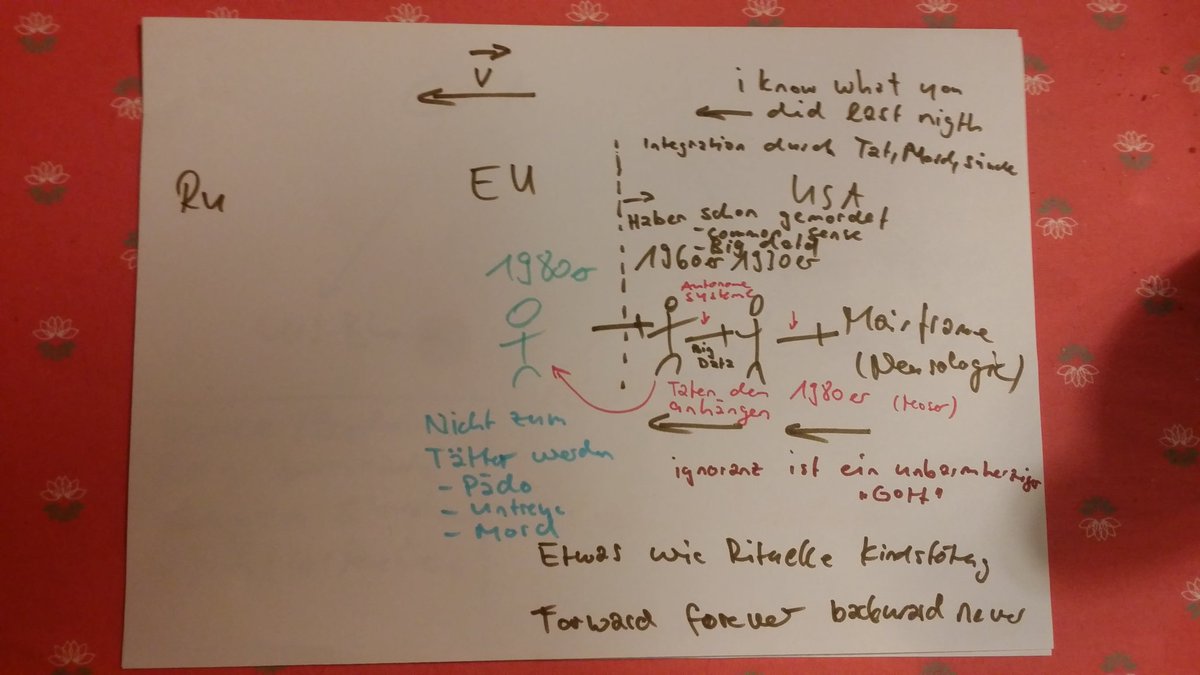 V
i know what you
did last nigth
Integration durch Tat, Mord, Sünde
Ru
EU
USA
Haben schon gemordet
- common sense
- Big data
1980er
1960er 1930er
Autonome
Systeme
Big
Data
Mainframe
(Neurologie)
Taten den
anhängen
1980er
Nicht zum
Tätter werden
- Pädo
- Untreue
- Mord
ignoranz ist ein unbarmherziger
"Gott"
Etwas wie Rituelle Kindstötung
Forward forever backward never